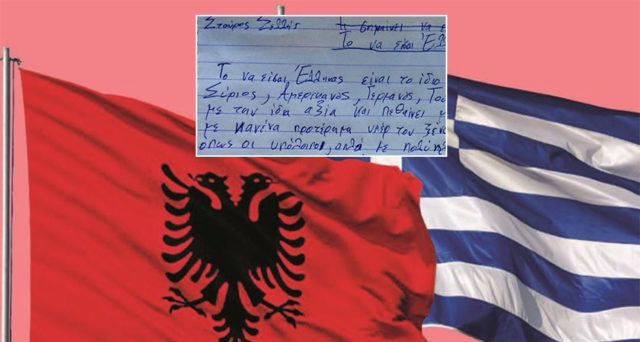 Σταύρος Ζαλλής τι σημαίνει να ε
Το να είσαι Έλλ
Το να είσαι Έλληνας είναι το ίδιο
Σύριος, Αμερικανός, Γερμανός, Του
με την ίδια αξία και πεθαίνει
με κανένα προτίμημα υπέρ του ξέν
όπως οι υπόλοιποι, αλλά με πολύ